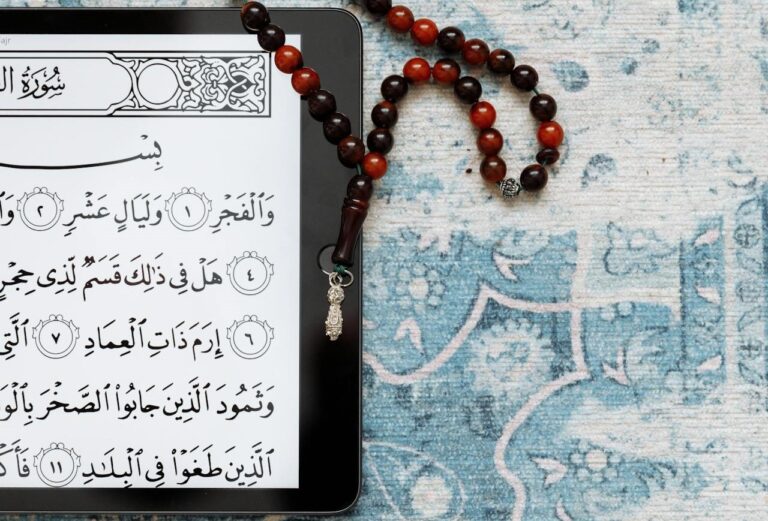 ajr
سُورَةُ
بِسْ
وَٱلْفَجْرِ ١ وَلَيَالٍ عَشْرٍ ٢
٤ هَلْ فِى ذَٰلِكَ قَسَمٌ لِّذِى حِجْرٍ
٦ إِرَمَ ذَاتِ ٱلْعِمَادِ ٧ ٱلَّتِى
وَثَمُودَ ٱلَّذِينَ جَابُوا۟ ٱلصَّخْرَ
ٱلَّذِينَ طَغَوْا۟ فِى ٱلْبِلَٰدِ ١١